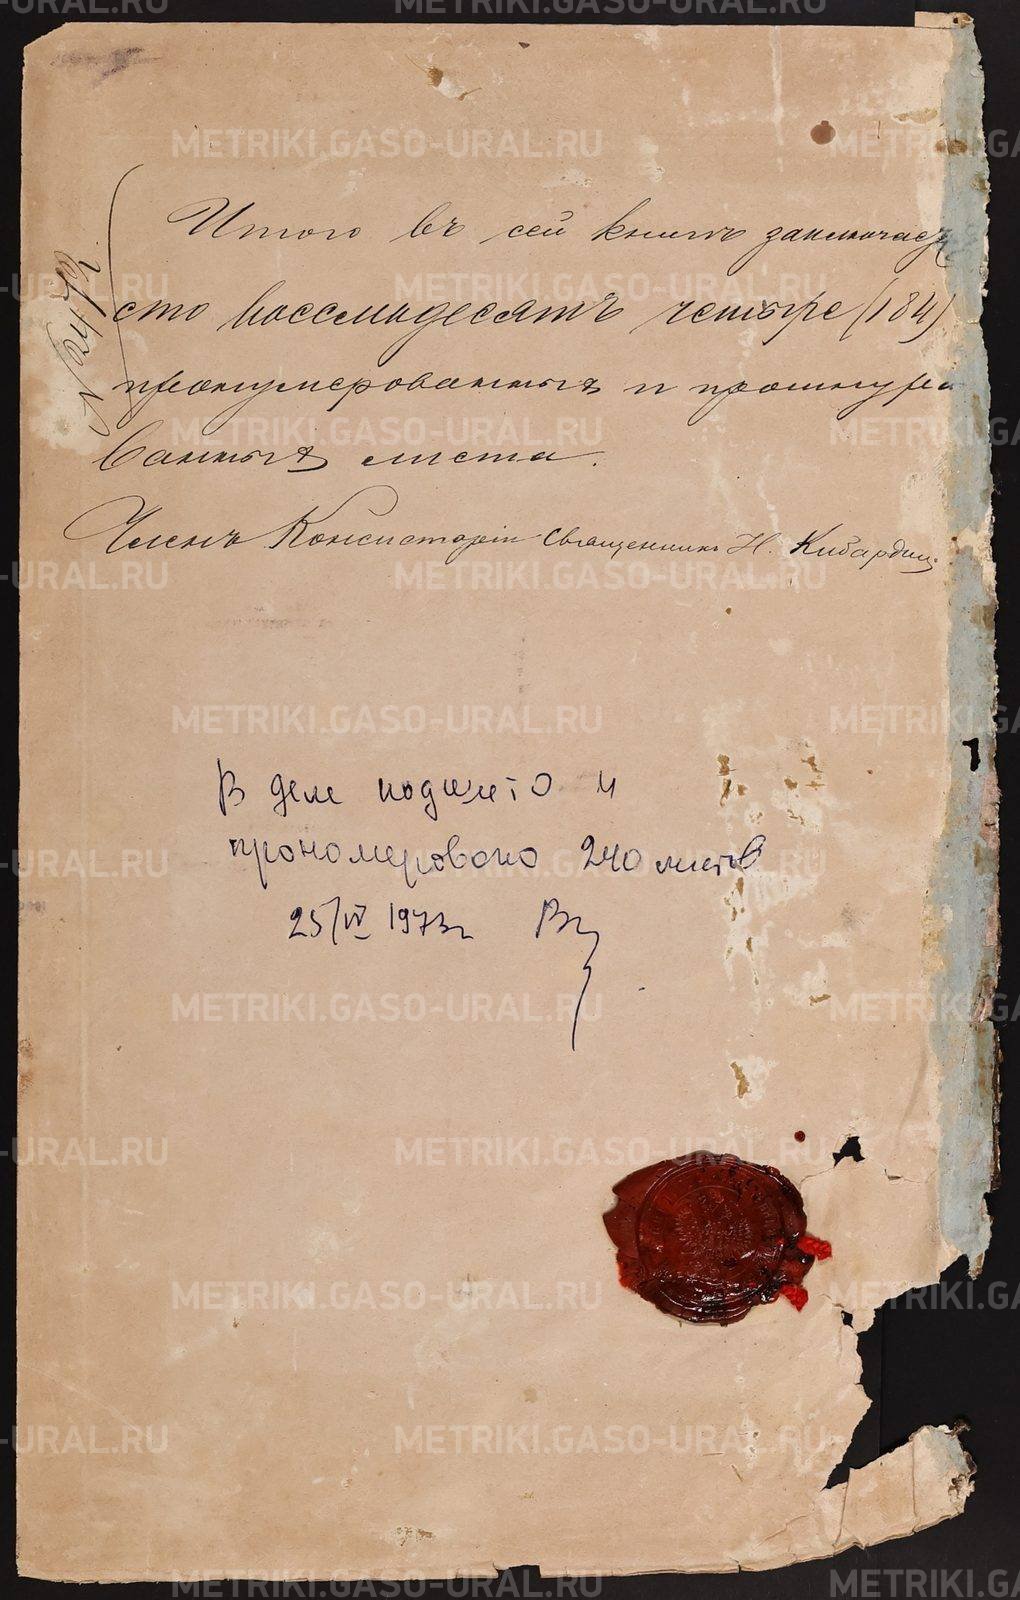 Итого въ сей книгѣ заключается
сто восемьдесятъ четыре (184)
пронумерованныхъ и прошнуро
ванныхъ листа.
Членъ Консисторіи Священникъ Н. Кибардин
В деле подшито и
прономеровано 240 листов
25/IV 1973г
METRIKI.GASO-URAL.RU